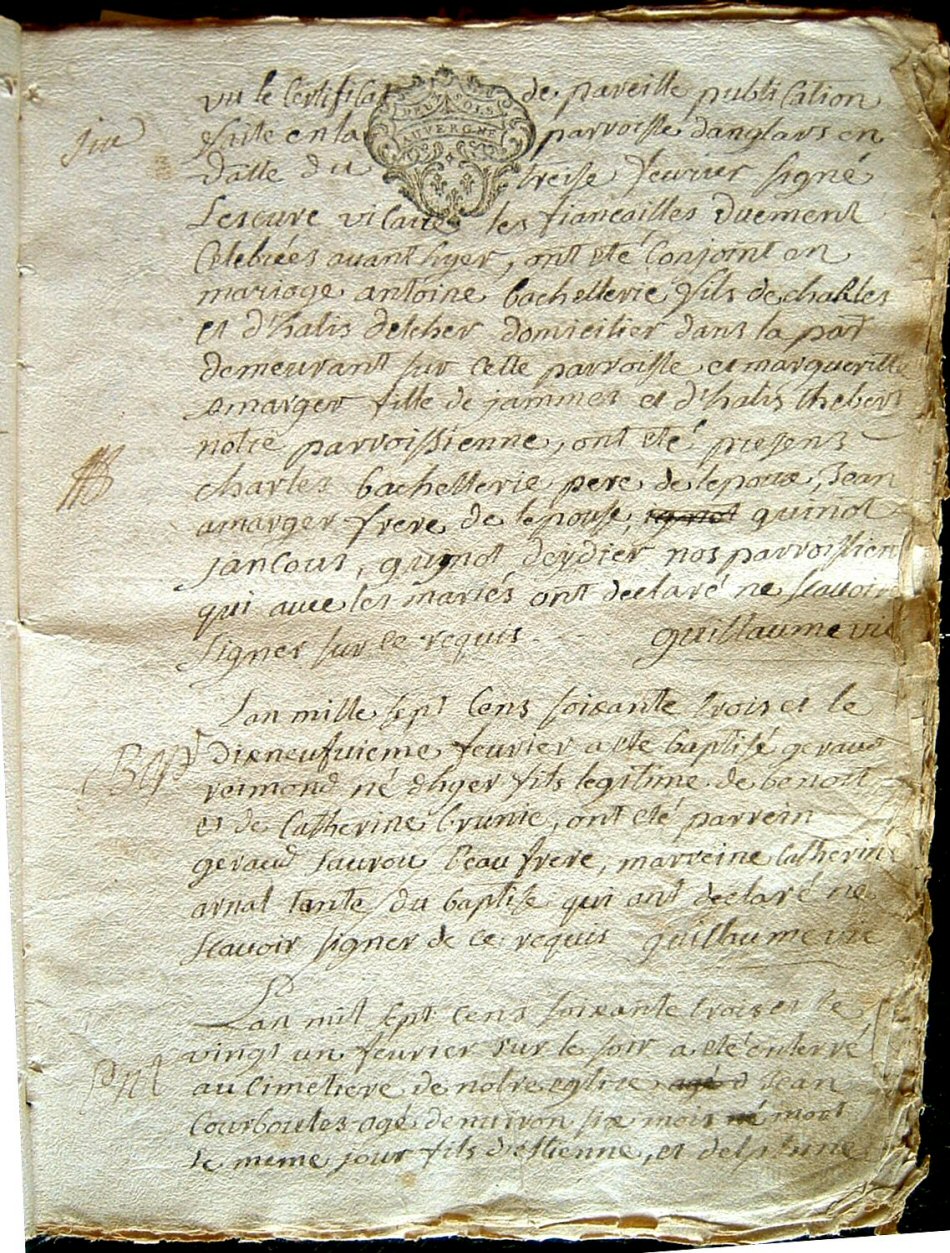 vu le Certificat de pareille publication
faite en la parroisse danglars en
datte du treise fevrier signé
Lescure vicaire les fiancailles duement
Celebrées avant hyer, ont eté Conjoint en
mariage antoine bachellerie fils de charles
et d'halis delcher domicilier dans la par
demeurant sur cette parroisse et margueritte
amarger fille de jammes et d'halis thebert
notre parroissienne, ont eté presens
charles bachellerie pere de lepoux, Jean
amarger frere de lepouse, guinot
jancout, guinot deydier nos parroissien
qui avec les mariés ont declaré ne scavoir
signer sur ce requis guillaume vic
DEUX SOLS
AUVERGNE
Lan mille sept Cens soixante trois et le
Bap
dixneufuieme feurier a ete baptisé geraud
reimond né dhyer fils legitime de benoit
et de Catherine brunie, ont eté parrein
geraud saurou beau frere, marreine Catherine
arnal tante du baptise qui ont declaré ne
scavoir signer de ce requis guilhaume vic
Lan mil sept cens soixante trois et le
vingt un fevrier sur le soir a eté enterré
au Cimetiere de notre eglise agé d Jean
Courboules agé denuiron six mois né mort
le meme jour fils d'estienne, et